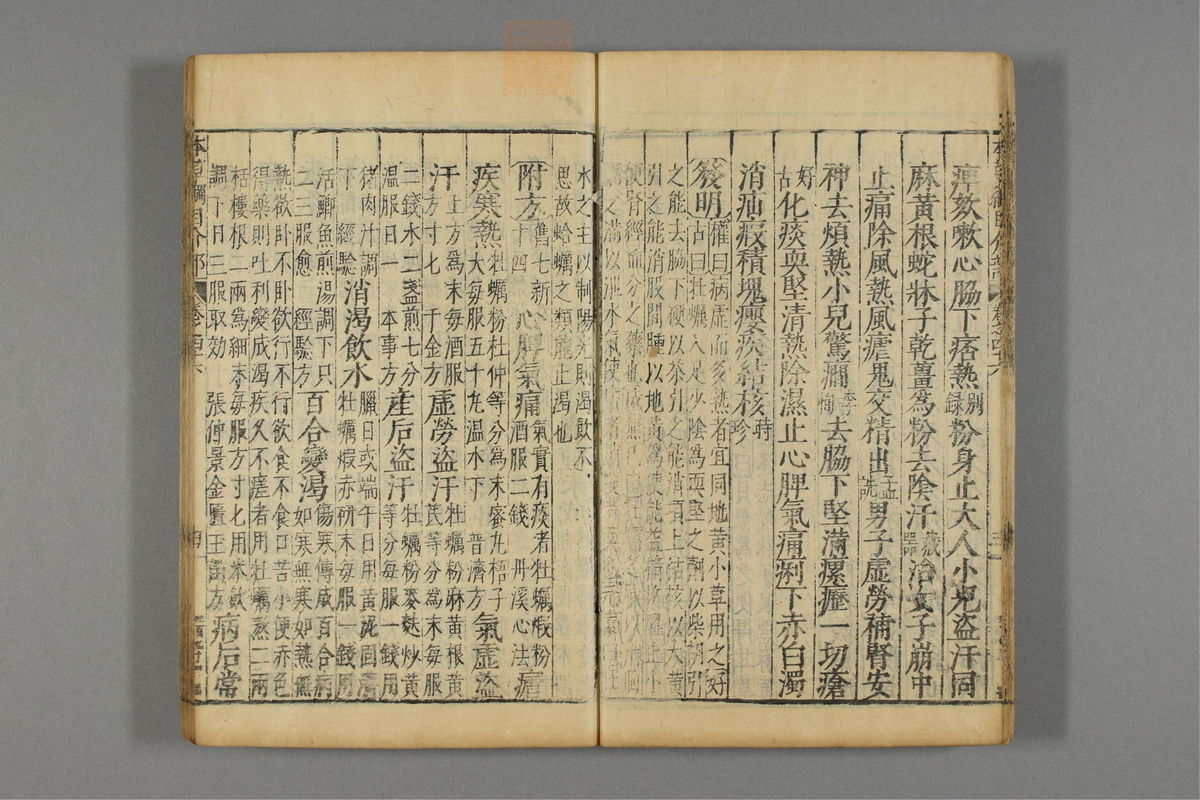 痺欬嗽心脇下痞熱別錄粉身止大人小兒盜汗同
麻黃根蛇牀子乾薑爲粉去陰汗藏器治女子崩中
止痛除風熱風瘧鬼交精出孟詵男子虛勞補腎安
神去煩熱小兒驚癇李珣去脇下堅滿瘰癧一切瘡
好古化痰耎堅清熱除濕止心脾氣痛痢下赤白濁
消疝瘕積塊癭疾結核時珍
發明權曰病虛而多熱者宜同地黃小草用之好
古曰牡蠣入足少陰爲耎堅之劑以柴胡引
之能去脇下硬以茶引之能消項上結核以大黃
引之能消股間腫以地黃爲使能益精
腎經血分之藥也成無己
之滿以泄水氣使
水之主以制陽光則渴飲不
思故蛤蠣之類能止渴也
附方舊七新十四心脾氣痛氣實有痰者牡蠣煆粉
酒服二錢丹溪心法瘧
疾寒熱牡蠣粉杜仲等分爲末蜜丸梧子
大每服五十丸溫水下普濟方氣虛盜
汗上方爲末每酒服
方寸匕千金方虛勞盜汗牡蠣粉麻黃根黃
芪等分爲末每服
二錢水二盞煎七分
溫服日一本事方產后盜汗牡蠣粉麥麩炒
等分每服一錢用
猪肉汁調
下經驗消渴飲水臘日或端午日用黃泥固濟
牡蠣煆赤研末每服一錢用
活鯽魚煎湯調下只
二三服愈經驗方百合變渴傷寒傳成百合病
如寒無寒如熱無
熱欲卧不卧欲行不行欲食不食口苦小便赤色
得藥則吐利變成渴疾久不瘥者用牡蠣熬二兩
栝樓根二兩爲細末每服方寸匕用米飲
調下日三服取効張仲景金匱玉函方病后常